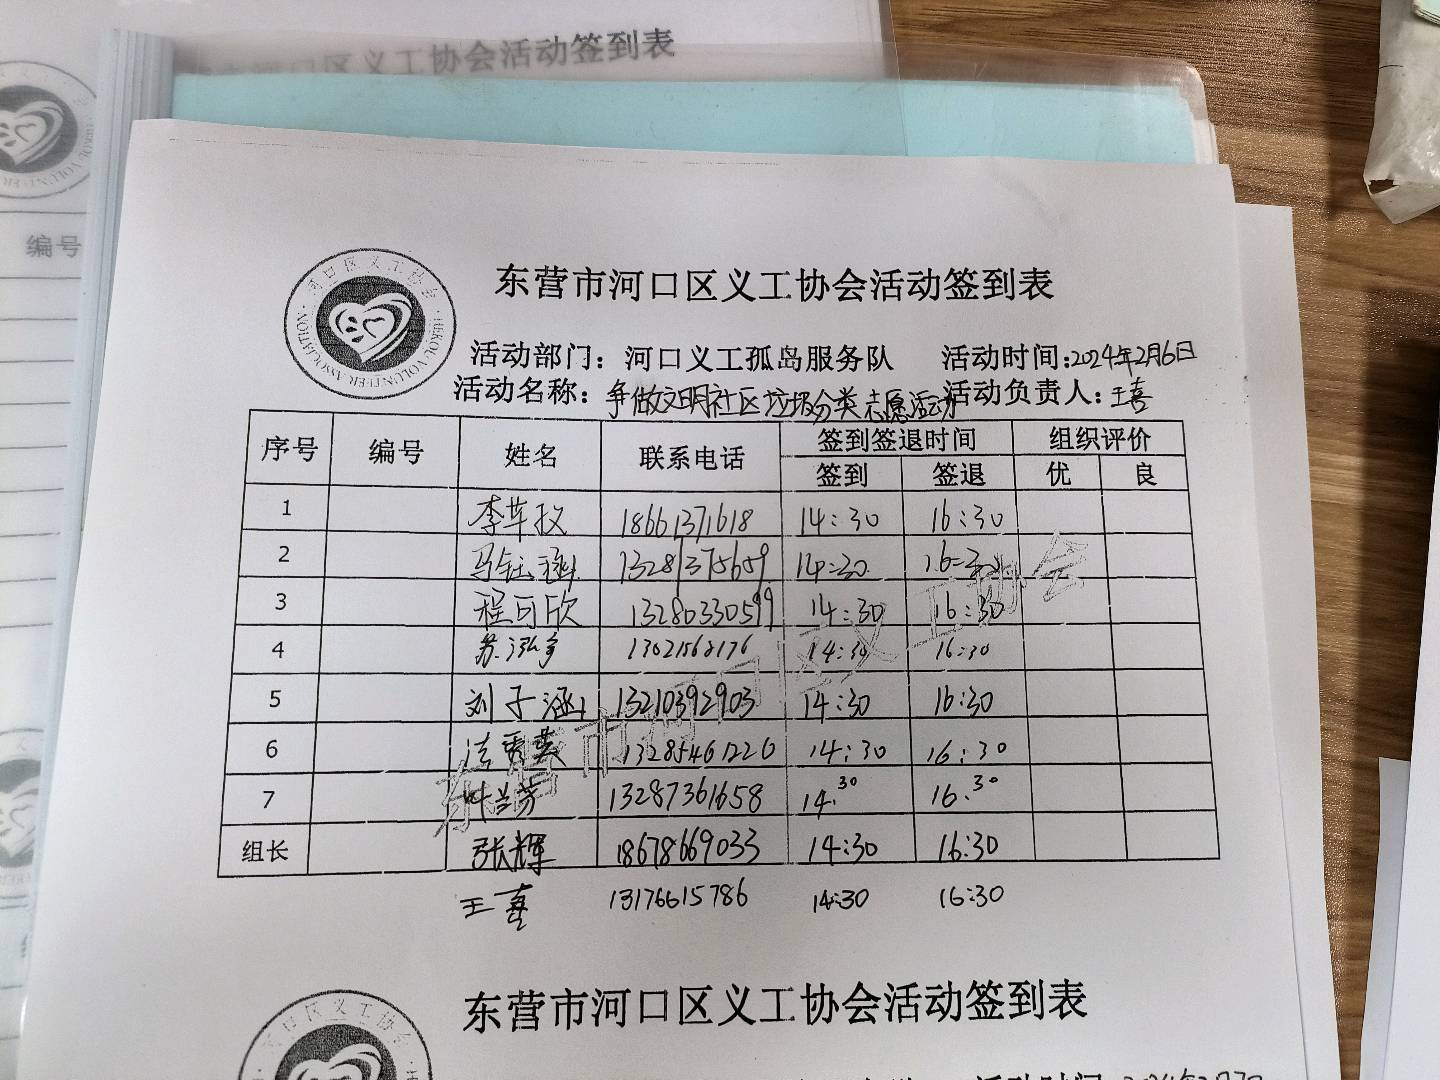 东营市河口区义工协会活动签到表
编号
东营市河口区义工协会活动签到表
河口区义工协会
HEKOU VOLUNTEER ASSOCIATION
活动部门：河口义工孤岛服务队 活动时间:2024年2月6日
活动名称：争做文明社区垃圾分类志愿活动 活动负责人：王喜
序号 编号 姓名 联系电话 签到签退时间 组织评价
签到 签退 优 良
1 18661371618 14:30 16:30
2 马钰涵 13281375659 14:30 16:30
3 程可欣 13280330599 14:30 16:30
4 苏泓宇 13021568176 14:30 16:30
5 刘子涵 13210392903 14:30 16:30
6 13285461226 14:30 16:30
7 叶兰芳 13287361658 14.30 16.30
组长 张辉 18678669033 14:30 16:30
王喜 13176615786 14:30 16:30
东营市河口区义工协会
东营市河口区义工协会活动签到表
河口区义工协会
活动时间:2024年2月7日